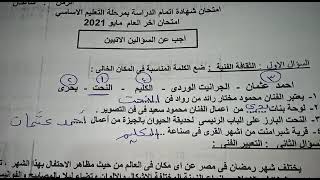 امتحان شهادة اتمام الدراسة بمرحلة التعليم الاساسى
امتحان اخر العام مايو 2021
أجب عن السؤالين الاتيين
السؤال الاول : الثقافة الفنية : ضع الكلمة المناسبة في المكان الخالى :
٣ ١ ٢
احمد عثمان - الجرانيت الوردى - الكليم - النحت - بحرى
١- يعتبر الفنان محمود مختار رائد من رواد فن النحت
٢- لوحة بنات بحرى من أعمال الفنان محمود سعيد فى فن التصوير.
٣- النحت البارز على الباب الرئيسى لحديقة الحيوان بالجيزة من أعمال احمد عثمان
٤- قرية شبرامنت من أشهر القرى فى صناعة الكليم
السؤال الثانى : التعبير الفنى :
يختلف شهر رمضان في مصر عن أى مكان في العالم من حيث مظاهر الاحتفال بهذا الشهر